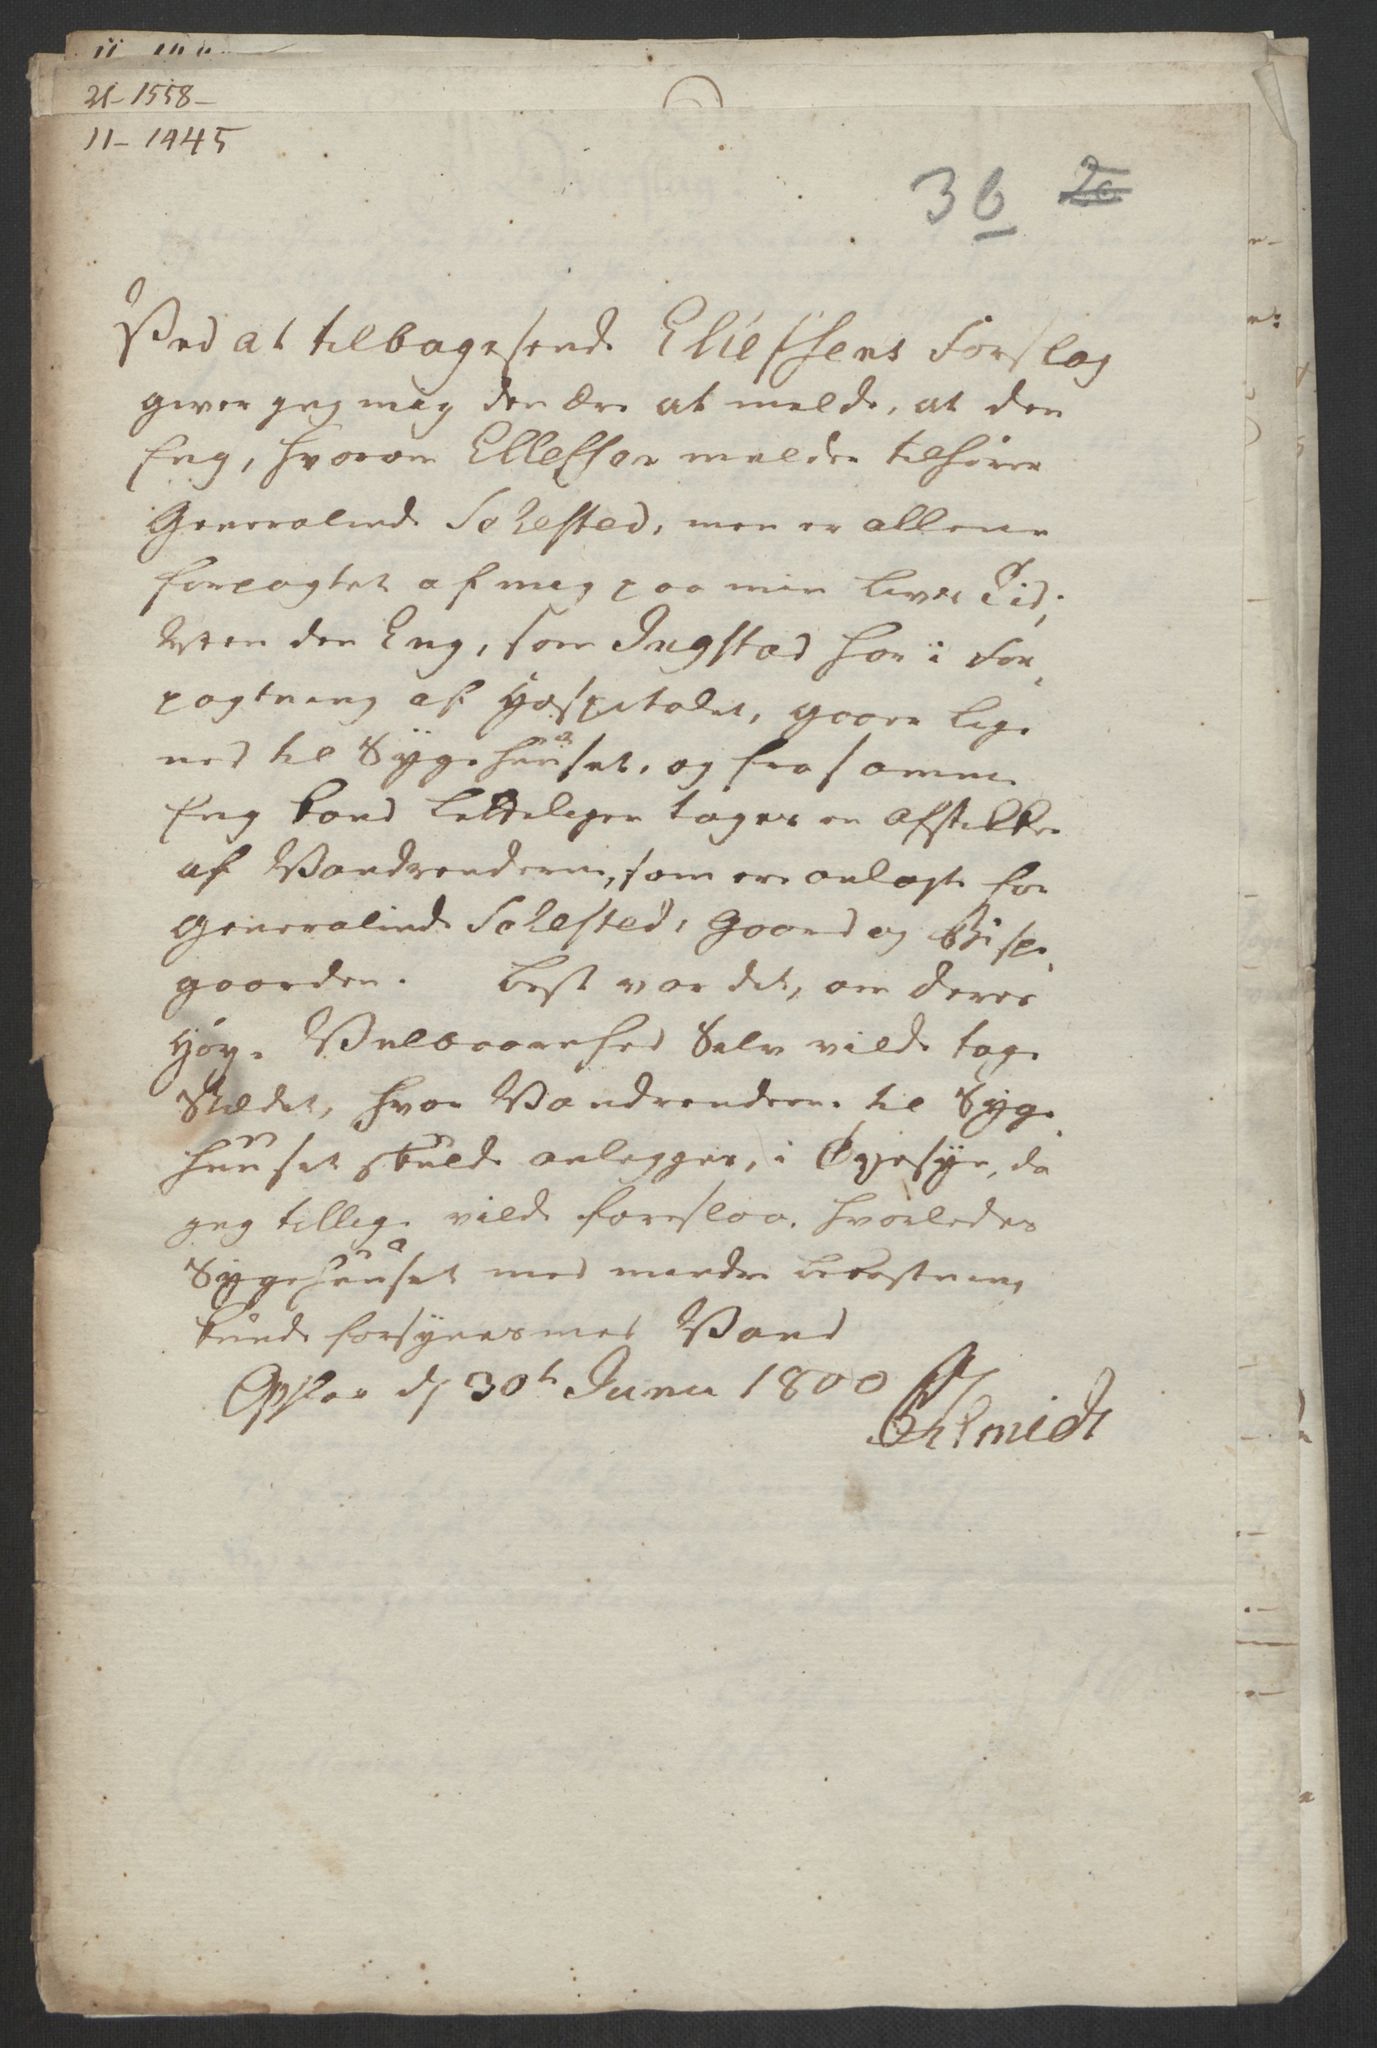 21-1558-
11-1445
36 20
Ved at tilbagesende Elieshens Forslag
giver jeg mig den Ære at melde, at den
Eng, hvorom Ellefsen melder tilhører
Generalinde Schested, men er allene
forpagtet af mig paa min Livs Tid;
Men den Eng, som Ingstad har i For¬
pagtning af Hospitalet, gaaer lige
ned til Sygehuuset, og fra samme
Eng kand letteligen tages en Afstikker
af Vandrenderne, som ere anlagte for
Generalinde Schesteds Gaard og Bispe¬
gaarden. Best var det, om Deres
Høy-Velbaarenhed Selv vilde tage
Stædet, hvor Vandrenderne til Syge¬
huuset skulde anlegges, i Øyesyn, da
jeg tillige vilde foreslaa, hvorledes
Sygehuuset med mindre Bekostning
kunde forsynes med Vand
Opsloe d. 30t Junii 1800
Schmidt